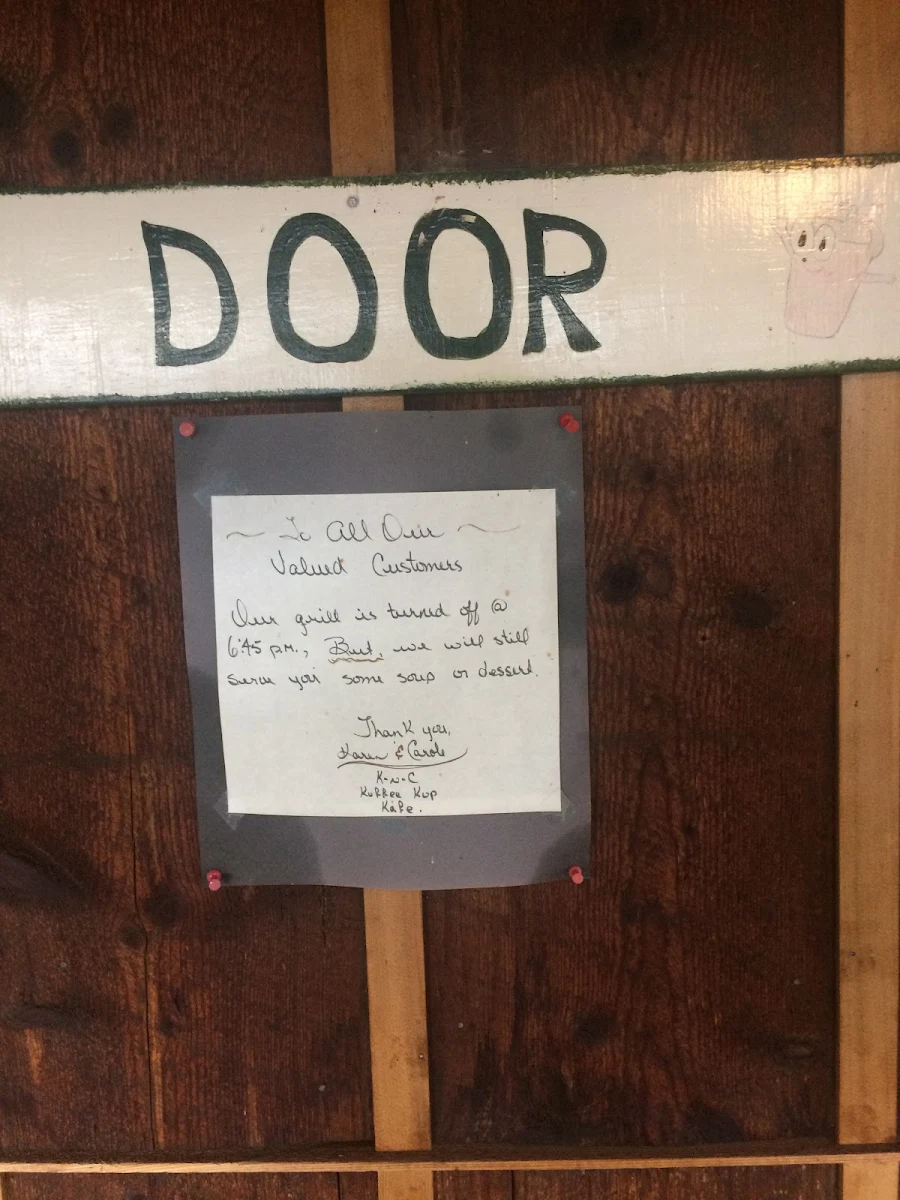 DOOR
~ To All Our ~
Valued Customers
Our grill is turned off @
6:45 p.m., But, we will still
serve you some soup or dessert.
Thank you,
Karen & Carole
K-n-C
Koffee Kup
Kafe.